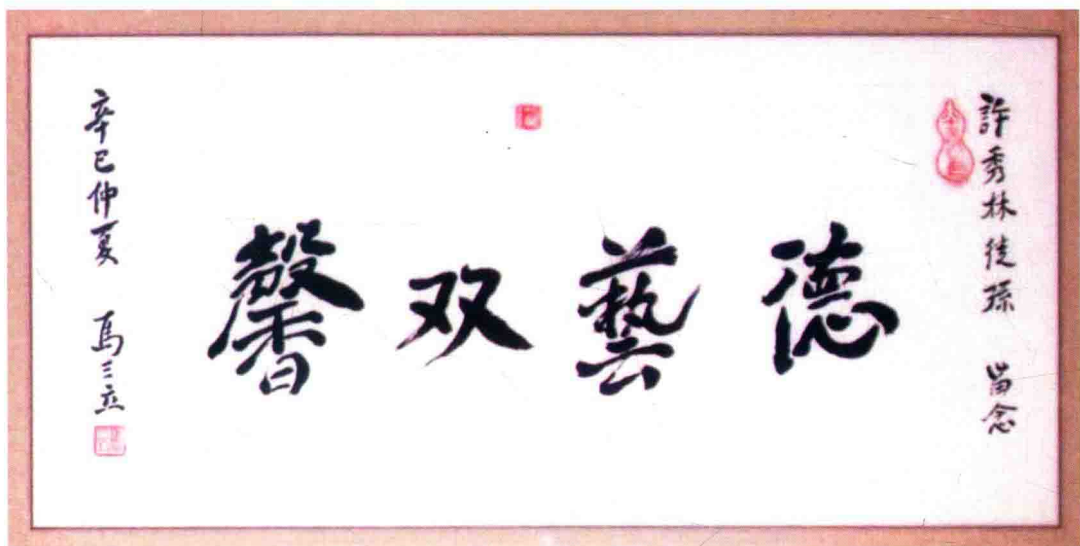 許秀林徒孫 留念
德藝双馨
辛巳仲夏 馬三立